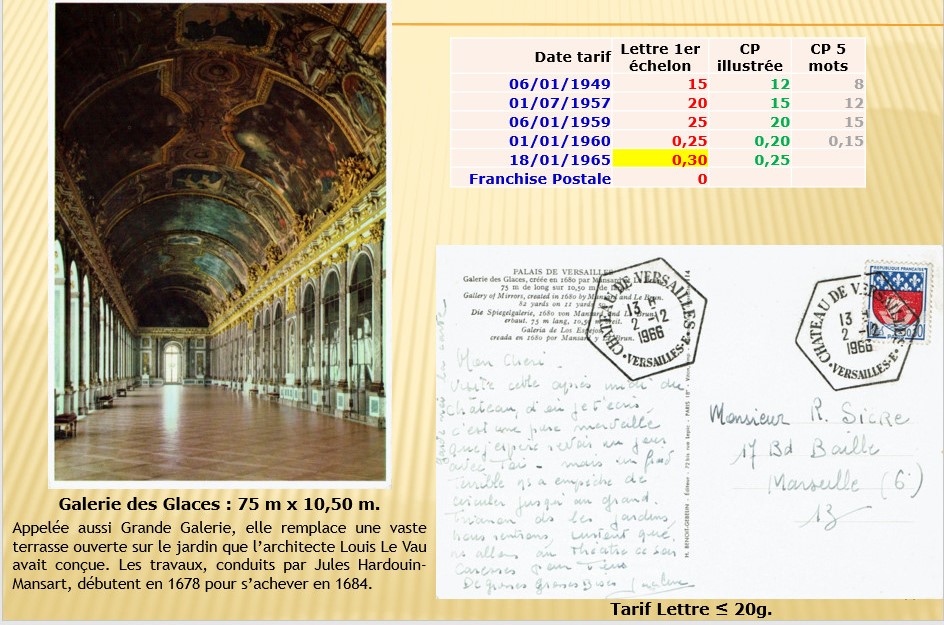 Date tarif Lettre 1er échelon CP illustrée CP 5 mots
06/01/1949 15 12 8
01/07/1957 20 15 12
06/01/1959 25 20 15
01/01/1960 0,25 0,20 0,15
18/01/1965 0,30 0,25
Franchise Postale 0
Galerie des Glaces : 75 m x 10,50 m.
Appelée aussi Grande Galerie, elle remplace une vaste
terrasse ouverte sur le jardin que l'architecte Louis Le Vau
avait conçue. Les travaux, conduits par Jules Hardouin-
Mansart, débutent en 1678 pour s'achever en 1684.
PALAIS DE VERSAILLES
Galerie des Glaces, créée en 1680 par Mansard et Le Brun.
75 m de long sur 10,50 m de
Gallery of Mirrors, created in 1680 by Mansard and Le Brun.
82 yards on 11 yards
Die Spiegelgalerie, 1680 von Mansard and Le Brun
erbaut. 75 m lang, 10,50 m breit.
Galeria de Los Espejos
creada en 1680 por Mansard y Le Brun
CHATEAU DE VERSAILLES
13 H
2 -12
1966
VERSAILLES-E
REPUBLIQUE FRANÇAISE
CHATEAU DE VERSAILLES
13 H
2 -12
1966
VERSAILLES-E
Mon Chéri.
Visité cette après midi du
château, d'où je t'écris,
c'est une pure merveille
que j'espère revoir un jour
avec toi - mais un froid
terrible ns a empêché de
circuler jusqu'au grand
Trianon ds les jardins,
nous rentrons,
ns allons au Théâtre ce soir
De grosses grosses Bises
Monsieur R. Sicre
17 Bd Baille
Marseille (6)
13
Tarif Lettre ≤ 20g.